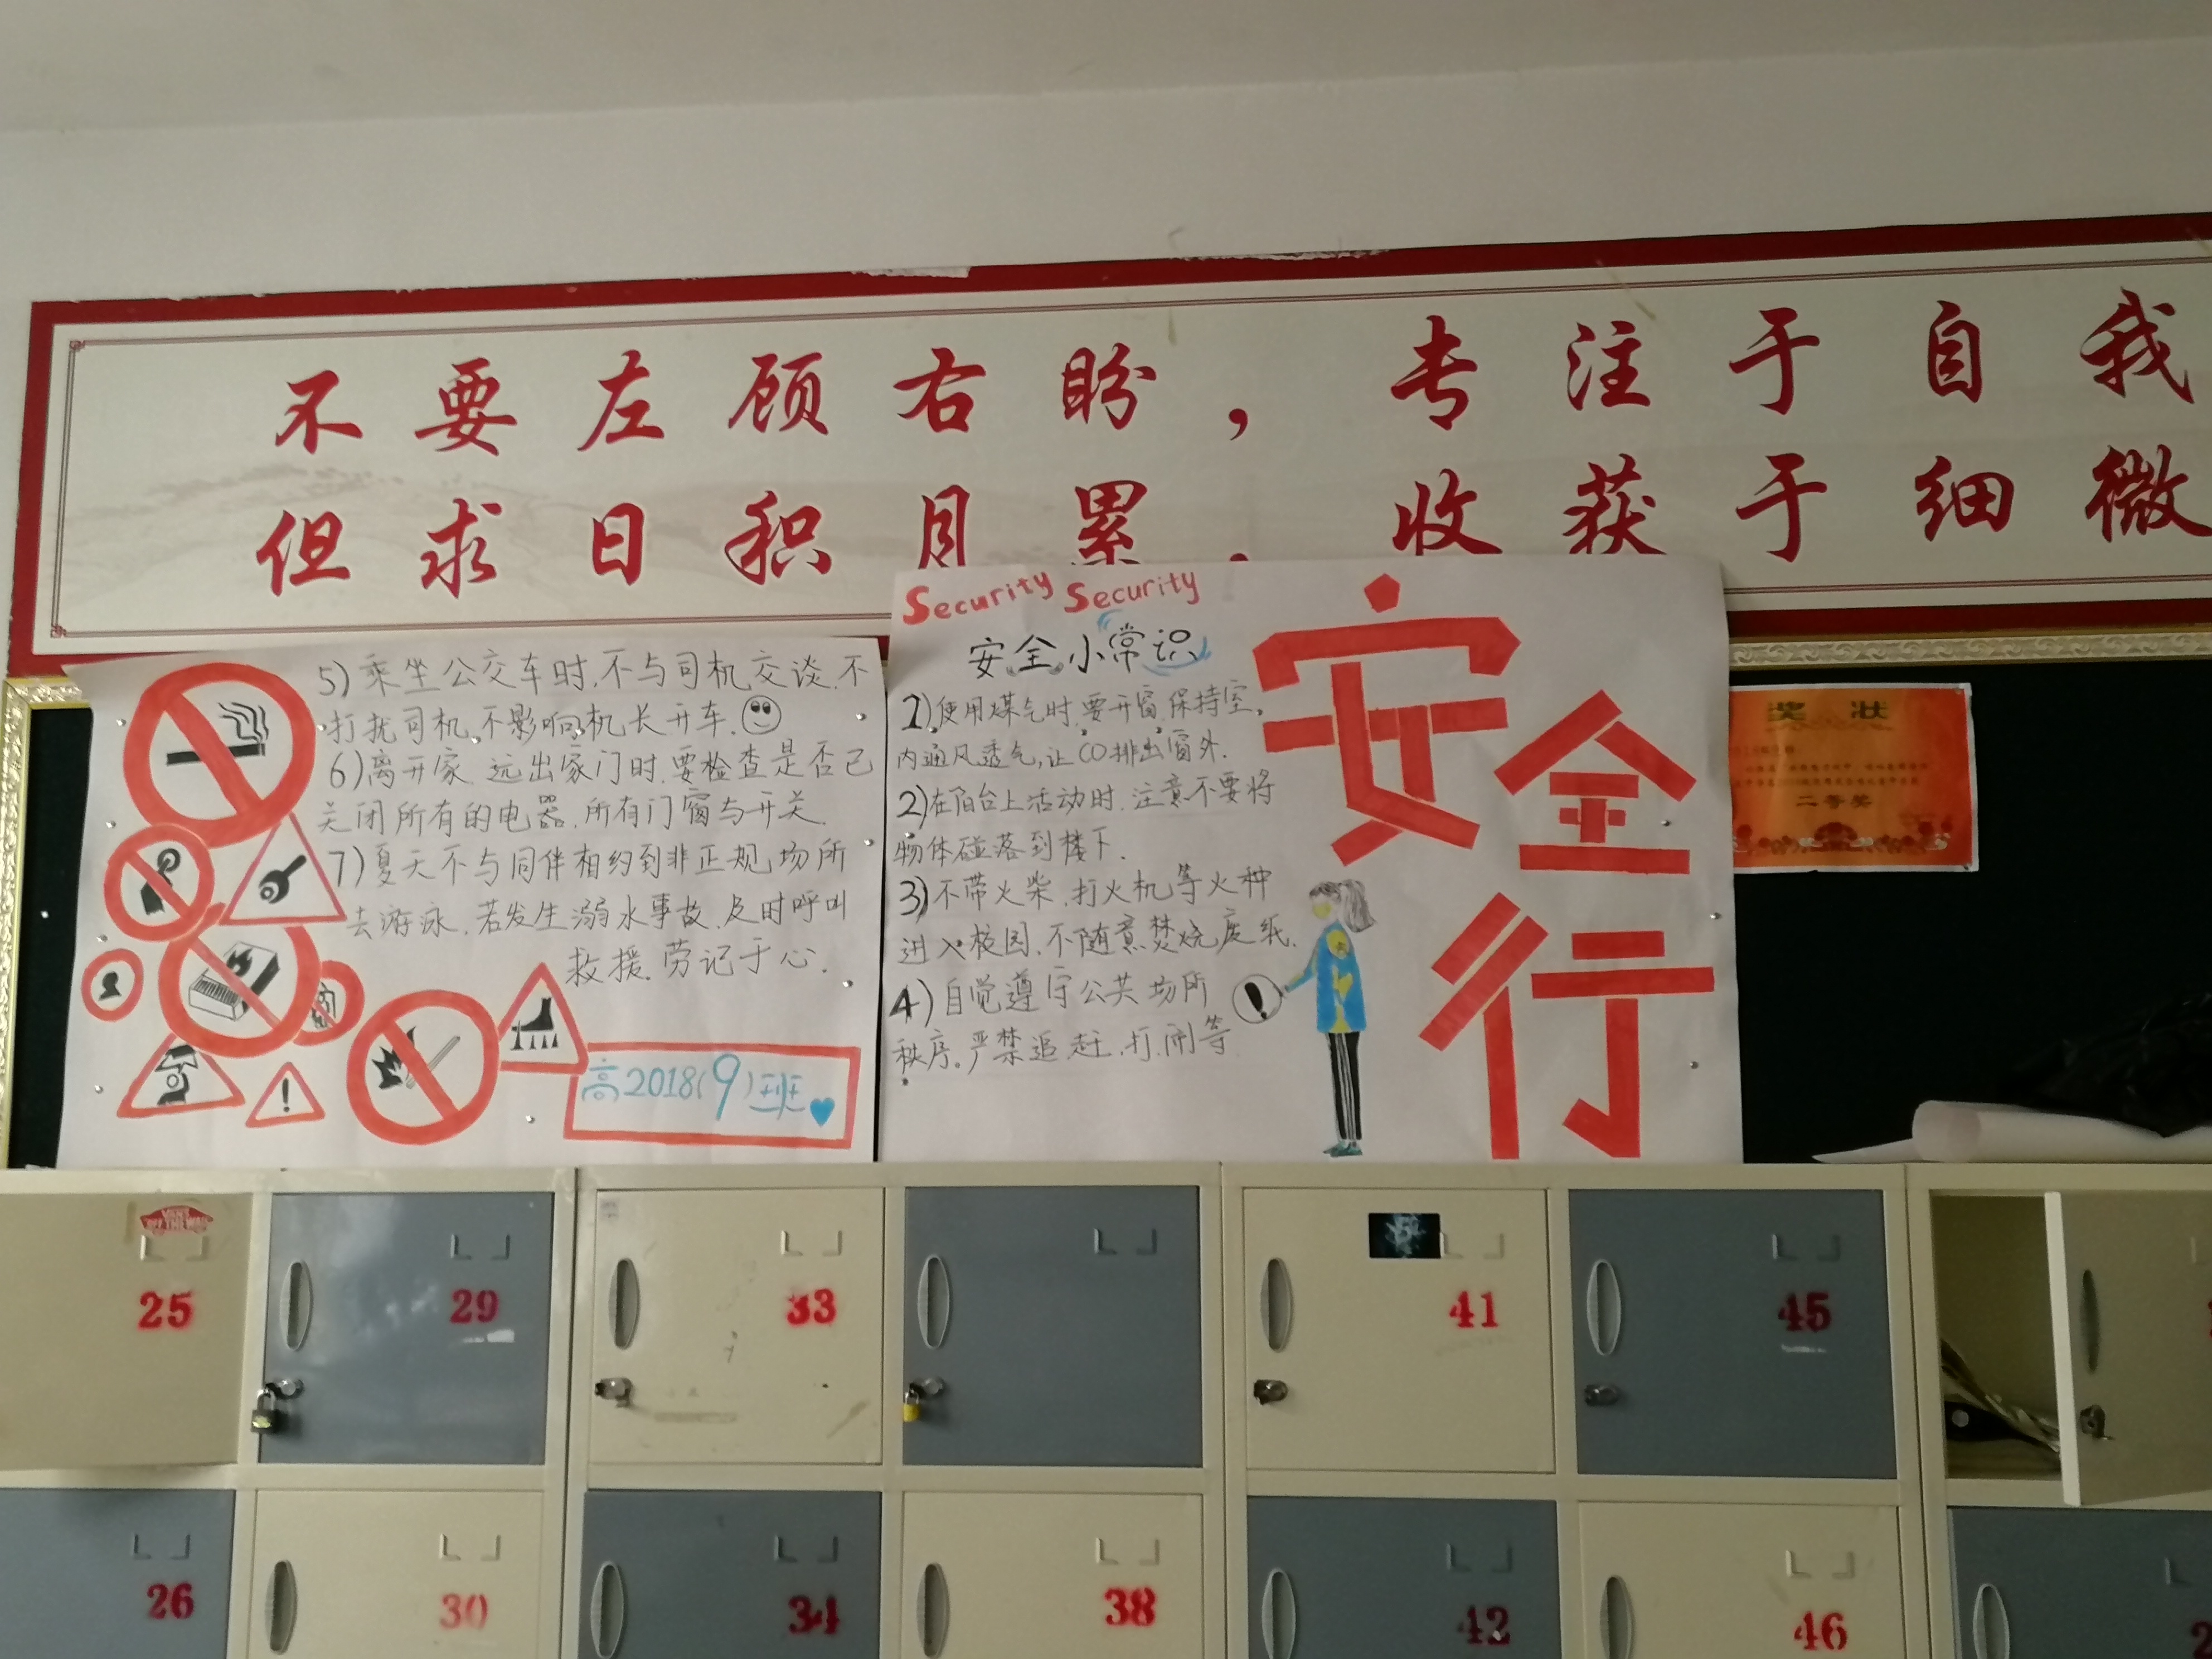 不要左顾右盼，专注于自我
但求日积月累，收获于细微
5)乘坐公交车时,不与司机交谈.不
打扰司机,不影响机长开车.
6)离开家.远出家门时.要检查是否已
关闭所有的电器.所有门窗与开关.
7)夏天不与同伴相约到非正规场所
去游泳.若发生溺水事故.及时呼叫
救援.劳记于心.
高2018(9)班
Security Security
安全小常识
1)使用煤气时.要开窗.保持室
内通风透气,让CO排出窗外.
2)在阳台上活动时.注意不要将
物体碰落到楼下.
3)不带火柴.打火机等火种
进入校园.不随意焚烧废纸.
4)自觉遵守公共场所
秩序。严禁追赶.打闹等
安全行
奖状
二等奖
VANS
OFF THE WALL
25
29
33
41
45
26
30
34
38
42
46